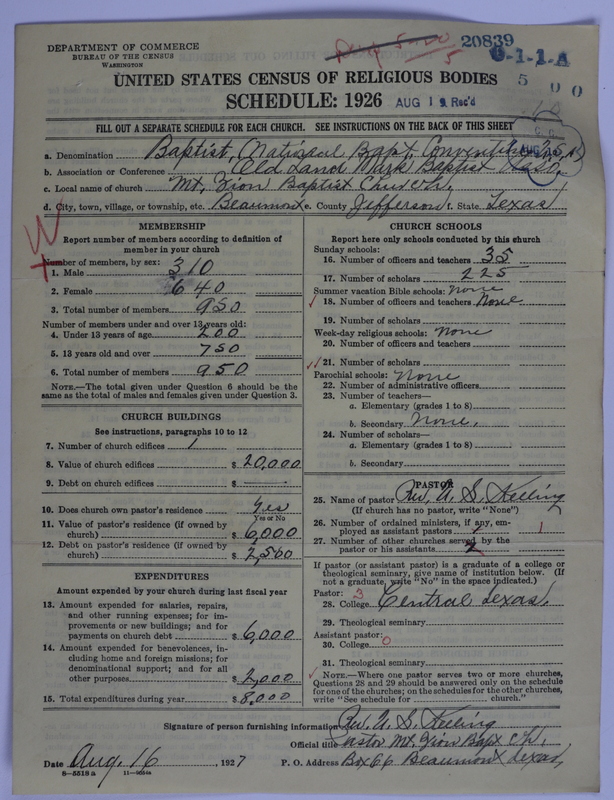 DEPARTMENT OF COMMERCE
BUREAU OF THE CENSUS
WASHINGTON
20839
5
5 0 0
UNITED STATES CENSUS OF RELIGIOUS BODIES
SCHEDULE: 1926
AUG 19 Rec'd
FILL OUT A SEPARATE SCHEDULE FOR EACH CHURCH. SEE INSTRUCTIONS ON THE BACK OF THIS SHEET
a. Denomination Baptist, National Bapt. Convention
b. Association or Conference Old Land Mark Baptist
c. Local name of church Mt. Zion Baptist Church,
d. City, town, village, or township, etc. Beaumont e. County Jefferson f. State Texas
W
MEMBERSHIP
Report number of members according to definition of
member in your church
Number of members, by sex:
1. Male 310
2. Female 640
3. Total number of members 950
Number of members under and over 13 years old:
4. Under 13 years of age 200
5. 13 years old and over 750
6. Total number of members 950
NOTE.—The total given under Question 6 should be the
same as the total of males and females given under Question 3.
CHURCH BUILDINGS
See instructions, paragraphs 10 to 12
7. Number of church edifices 1
8. Value of church edifices $ 20,000
9. Debt on church edifices $
10. Does church own pastor's residence? Yes
Yes or No
11. Value of pastor's residence (if owned by
church) $ 6,000
12. Debt on pastor's residence (if owned by
church) $ 2,560
EXPENDITURES
Amount expended by your church during last fiscal year
13. Amount expended for salaries, repairs,
and other running expenses; for im-
provements or new buildings; and for
payments on church debt $ 6,000
14. Amount expended for benevolences, in-
cluding home and foreign missions; for
denominational support; and for all
other purposes $ 2,000
15. Total expenditures during year $ 8,000
CHURCH SCHOOLS
Report here only schools conducted by this church
Sunday schools:
16. Number of officers and teachers 35
17. Number of scholars 225
Summer vacation Bible schools: None
18. Number of officers and teachers None
19. Number of scholars
Week-day religious schools: None
20. Number of officers and teachers
21. Number of scholars
Parochial schools: None
22. Number of administrative officers
23. Number of teachers—
a. Elementary (grades 1 to 8)
b. Secondary None.
24. Number of scholars—
a. Elementary (grades 1 to 8)
b. Secondary
PASTOR
25. Name of pastor Rev. A. S. Keeling
(If church has no pastor, write "None")
26. Number of ordained ministers, if any, em-
ployed as assistant pastors 1
27. Number of other churches served by the
pastor or his assistants
If pastor (or assistant pastor) is a graduate of a college or
theological seminary, give name of institution below. (If
not a graduate, write "No" in the space indicated.)
Pastor: 3
28. College Central Texas,
29. Theological seminary
Assistant pastor:
30. College 0
31. Theological seminary
NOTE.—Where one pastor serves two or more churches,
Questions 28 and 29 should be answered only on the schedule
for one of the churches; on the schedules for the other churches,
write "See schedule for church."
Signature of person furnishing information Rev. A. S. Keeling
Official title Pastor Mt. Zion Bapt Ch.
Date Aug. 16, 1927 P. O. Address Box 66 Beaumont Texas,
8—5518 a 11—9554a